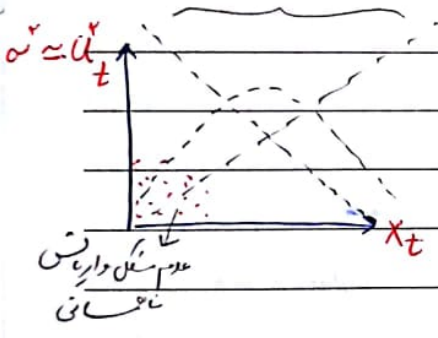 σ^۲ ≃ û_t^۲
X_t
عدم مشکل واریانس
ناهمسانی